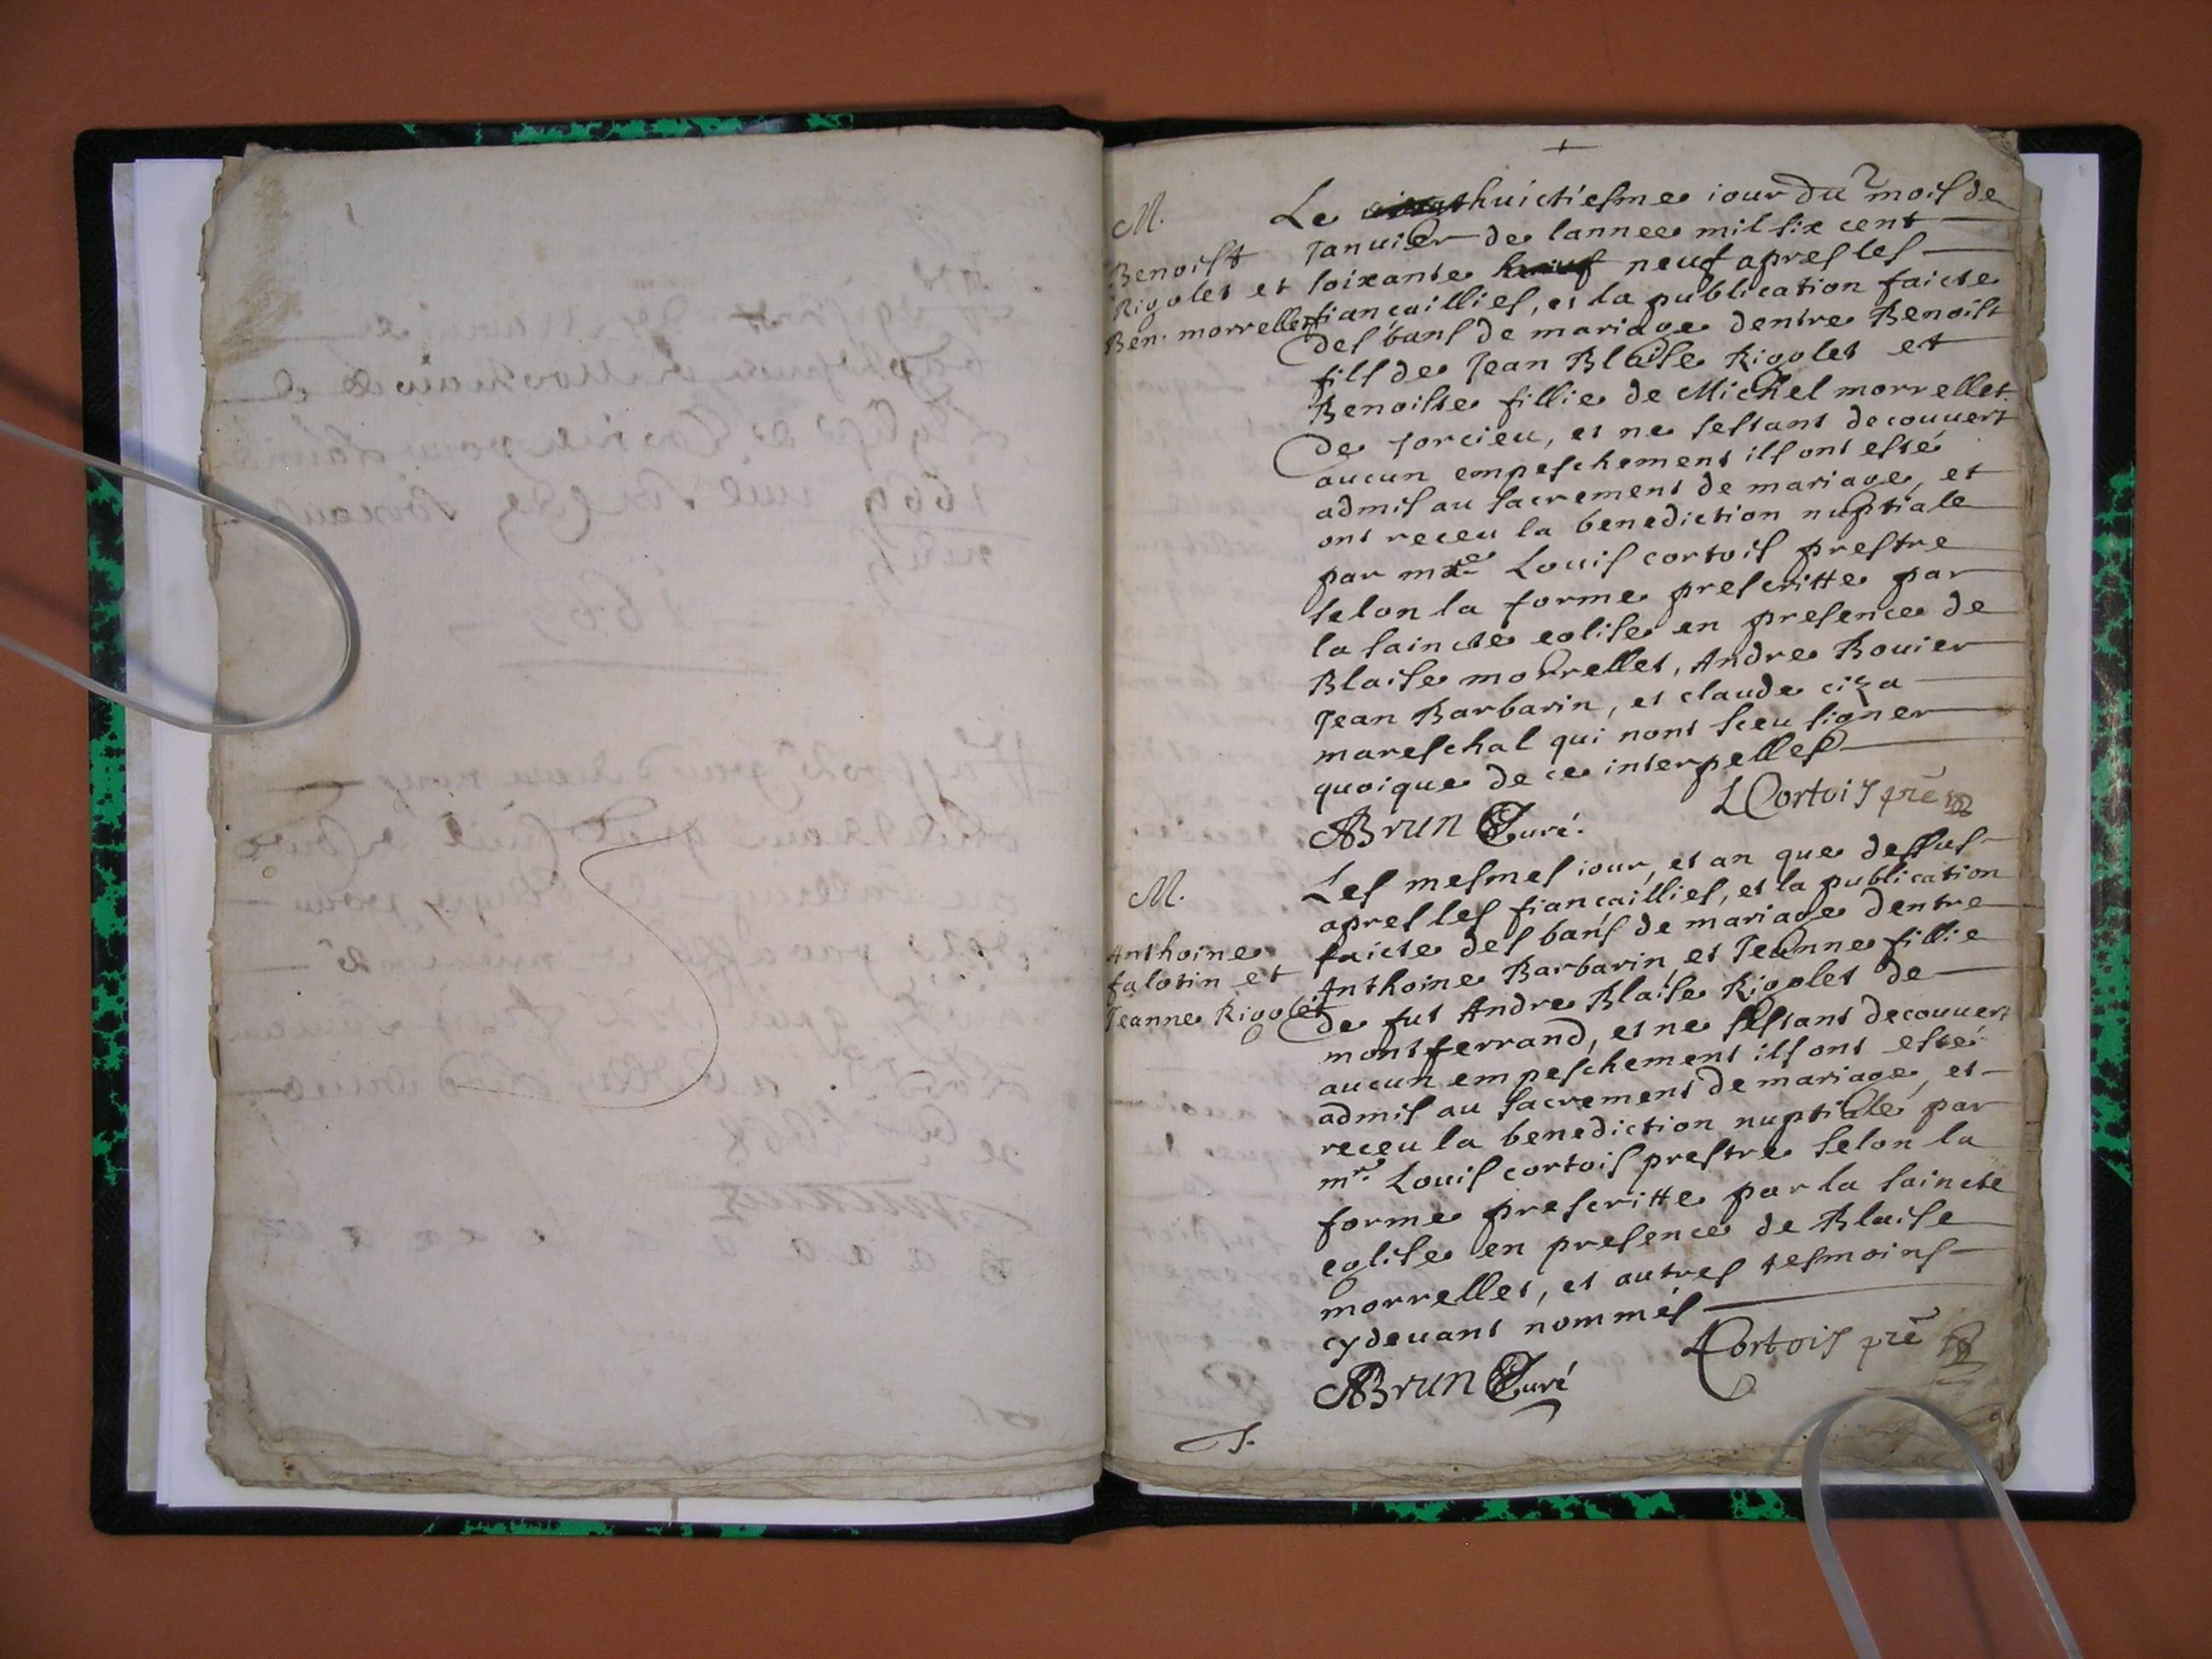 M.
Benoist
Rigolet et
Ben. morrellet
Le huictiesme iour du mois de
Januier de lannee mil six cent
soixante neuf apres les
fiançaillies, et la publication faicte
des bans de mariage dentre Benoist
fils de Jean Blaise Rigolet et
Benoiste fillie de Michel morrellet
de Torcieu, et ne sestant decouuert
aucun empeschement ils ont esté
admis au sacrement de mariage, et
ont receu la benediction nuptiale
par mre Louis cortois prestre
selon la forme prescritte par
la saincte eglise en presence de
Blaise morrellet, Andre Bouier
Jean Barbarin, et claude ciza
mareschal qui nont sceu signer
quoique de ce interpelles
LCortois pre
ABrun Curé.
M.
Anthoine
falotin et
Jeanne Rigolet
Les mesmes iour, et an que dessus
apres les fiancaillies, et la publication
faicte des bans de mariage dentre
Anthoine Barbarin, et Jeanne fillie
de fut Andre Blaise Rigolet de
montferrand, et ne sestant decouuert
aucun empeschement ils ont esté
admis au sacrement de mariage, et
receu la benediction nuptiale par
mre Louis cortois prestre selon la
forme prescritte par la saincte
eglise en presence de Blaise
morrellet, et autres tesmoins
cydeuant nommés
LCortois pre
ABrun Curé